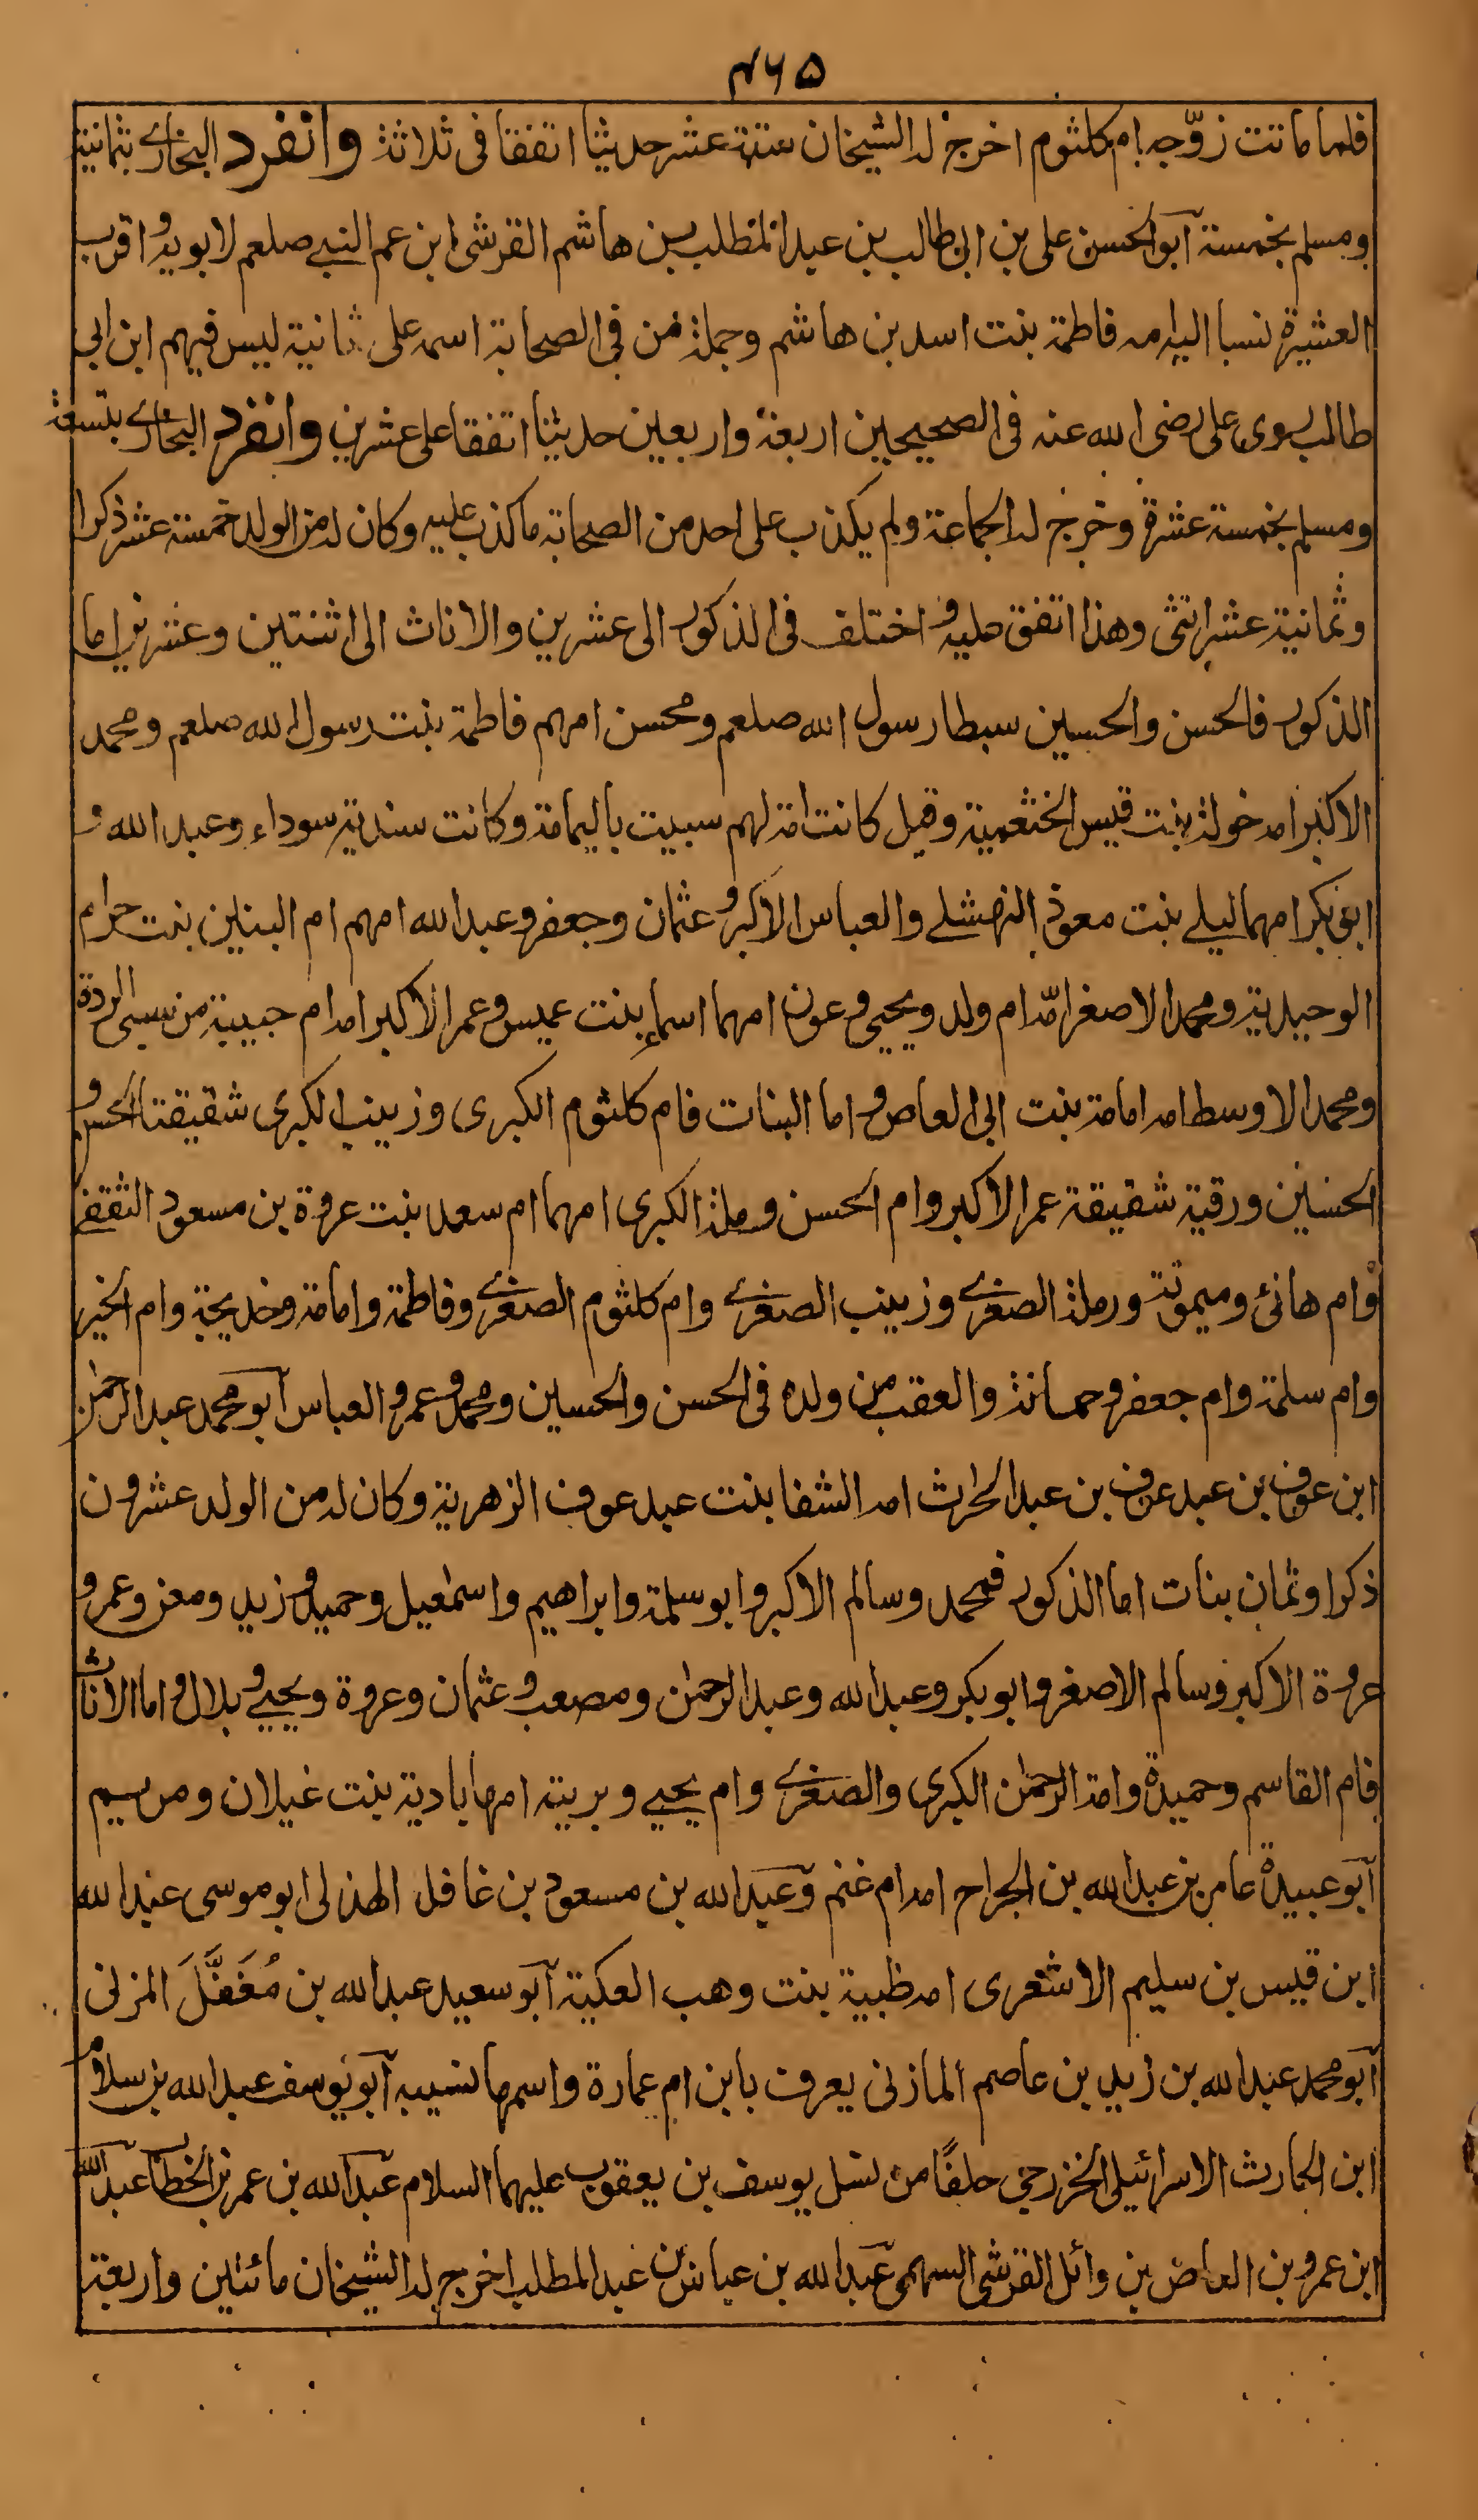 ٤٦٥
فلما ماتت زوّجه ام كلثوم اخرج له الشيخان ستة عشر حديثا اتفقا فى ثلاثة وانفرد البخارى بثمانية
ومسلم بخمسة آبو الحسن على بن ابى طالب بن عبد المطلب بن هاشم القرشى ابن عم النبى صلعم لابويه و اقرب
العشيرة نسبا اليه امه فاطمة بنت اسد بن هاشم وجملة من فى الصحابة اسمه على ثمانية ليس فيهم ابن ابى
طالب سوى على رضى الله عنه فى الصحيحين اربعة واربعين حديثا اتفقا على عشرين وانفرد البخارى بتسعة
ومسلم بخمسة عشرة وخرج له الجماعة ولم يكذب على احد من الصحابة ما كذب عليه وكان له من الولد خمسة عشر ذكرا
وثمانية عشر انثى وهذا اتفق عليه و اختلف فى الذكور الى عشرين والاناث الى اثنتين وعشرين اما
الذكور فالحسن والحسين سبطا رسول الله صلعم ومحسن امهم فاطمة بنت رسول الله صلعم ومحمد
الاكبر امه خولة بنت قيس الخثعمية وقيل كانت امة لهم سبيت باليمامة وكانت سندية سوداء وعبد الله و
ابو بكر امهما ليلے بنت معوذ النهشلے والعباس الاكبر و عثمان وجعفر وعبد الله امهم ام البنين بنت حرام
الوحيدية ومحمد الاصغر امّه ام ولد ويحيى و عون امهما اسماء بنت عميس و عمر الاكبر امه ام حبيبة من سبى الردة
ومحمد الاوسط امه امامة بنت ابى العاص و اما البنات فام كلثوم الكبرى وزينب الكبرى شقيقتا الحسن و
الحسين ورقية شقيقة عمر الاكبر وام الحسن ورملة الكبرى امهما ام سعد بنت عروة بن مسعود الثقفے
وام هانئ وميمونة ورملة الصغرے وزينب الصغرے وام كلثوم الصغرے وفاطمة وامامة وخديجة وام الخير
وام سلمة وام جعفر و حمانة والعقب من ولده فى الحسن والحسين ومحمد و عمر و العباس آبو محمد عبد الرحمٰن
ابن عوف بن عبد عوف بن عبد الحارث امه الشفا بنت عبد عوف الزهرية وكان له من الولد عشرون
ذكرا وثمان بنات اما الذكور فمحمد وسالم الاكبر وابو سلمة وابراهيم واسمٰعيل وحميد و زيد ومعن وعمر و
عروة الاكبر وسالم الاصغر و ابو بكر وعبد الله وعبد الرحمٰن ومصعب و عثمان وعروة ويحيے و بلال و اما الاناث
فام القاسم وحميدة وامة الرحمٰن الكبرى والصغرے وام يحيے وبرية امها بادية بنت غيلان ومريم
آبو عبيدة عامر بن عبد الله بن الجراح امه ام غنم وعبد الله بن مسعود بن غافل الهذلى ابو موسى عبد الله
ابن قيس بن سليم الاشعرى امه ظبية بنت وهب العكية آبو سعيد عبد الله بن مُغَفَّلَ المزنى
آبو محمد عبد الله بن زيد بن عاصم المازنى يعرف بابن ام عمارة واسمها نسيبه آبو يوسف عبد الله بن سلام
ابن الحارث الاسرائيلى الخزرجى حلفًا من نسل يوسف بن يعقوب عليهما السلام عبد الله بن عمر بن الخطاب عبد الله
ابن عمرو بن العاص بن وائل القرشى السهمى عبد الله بن عباس بن عبد المطلب اخرج له الشيخان مائتين واربعة